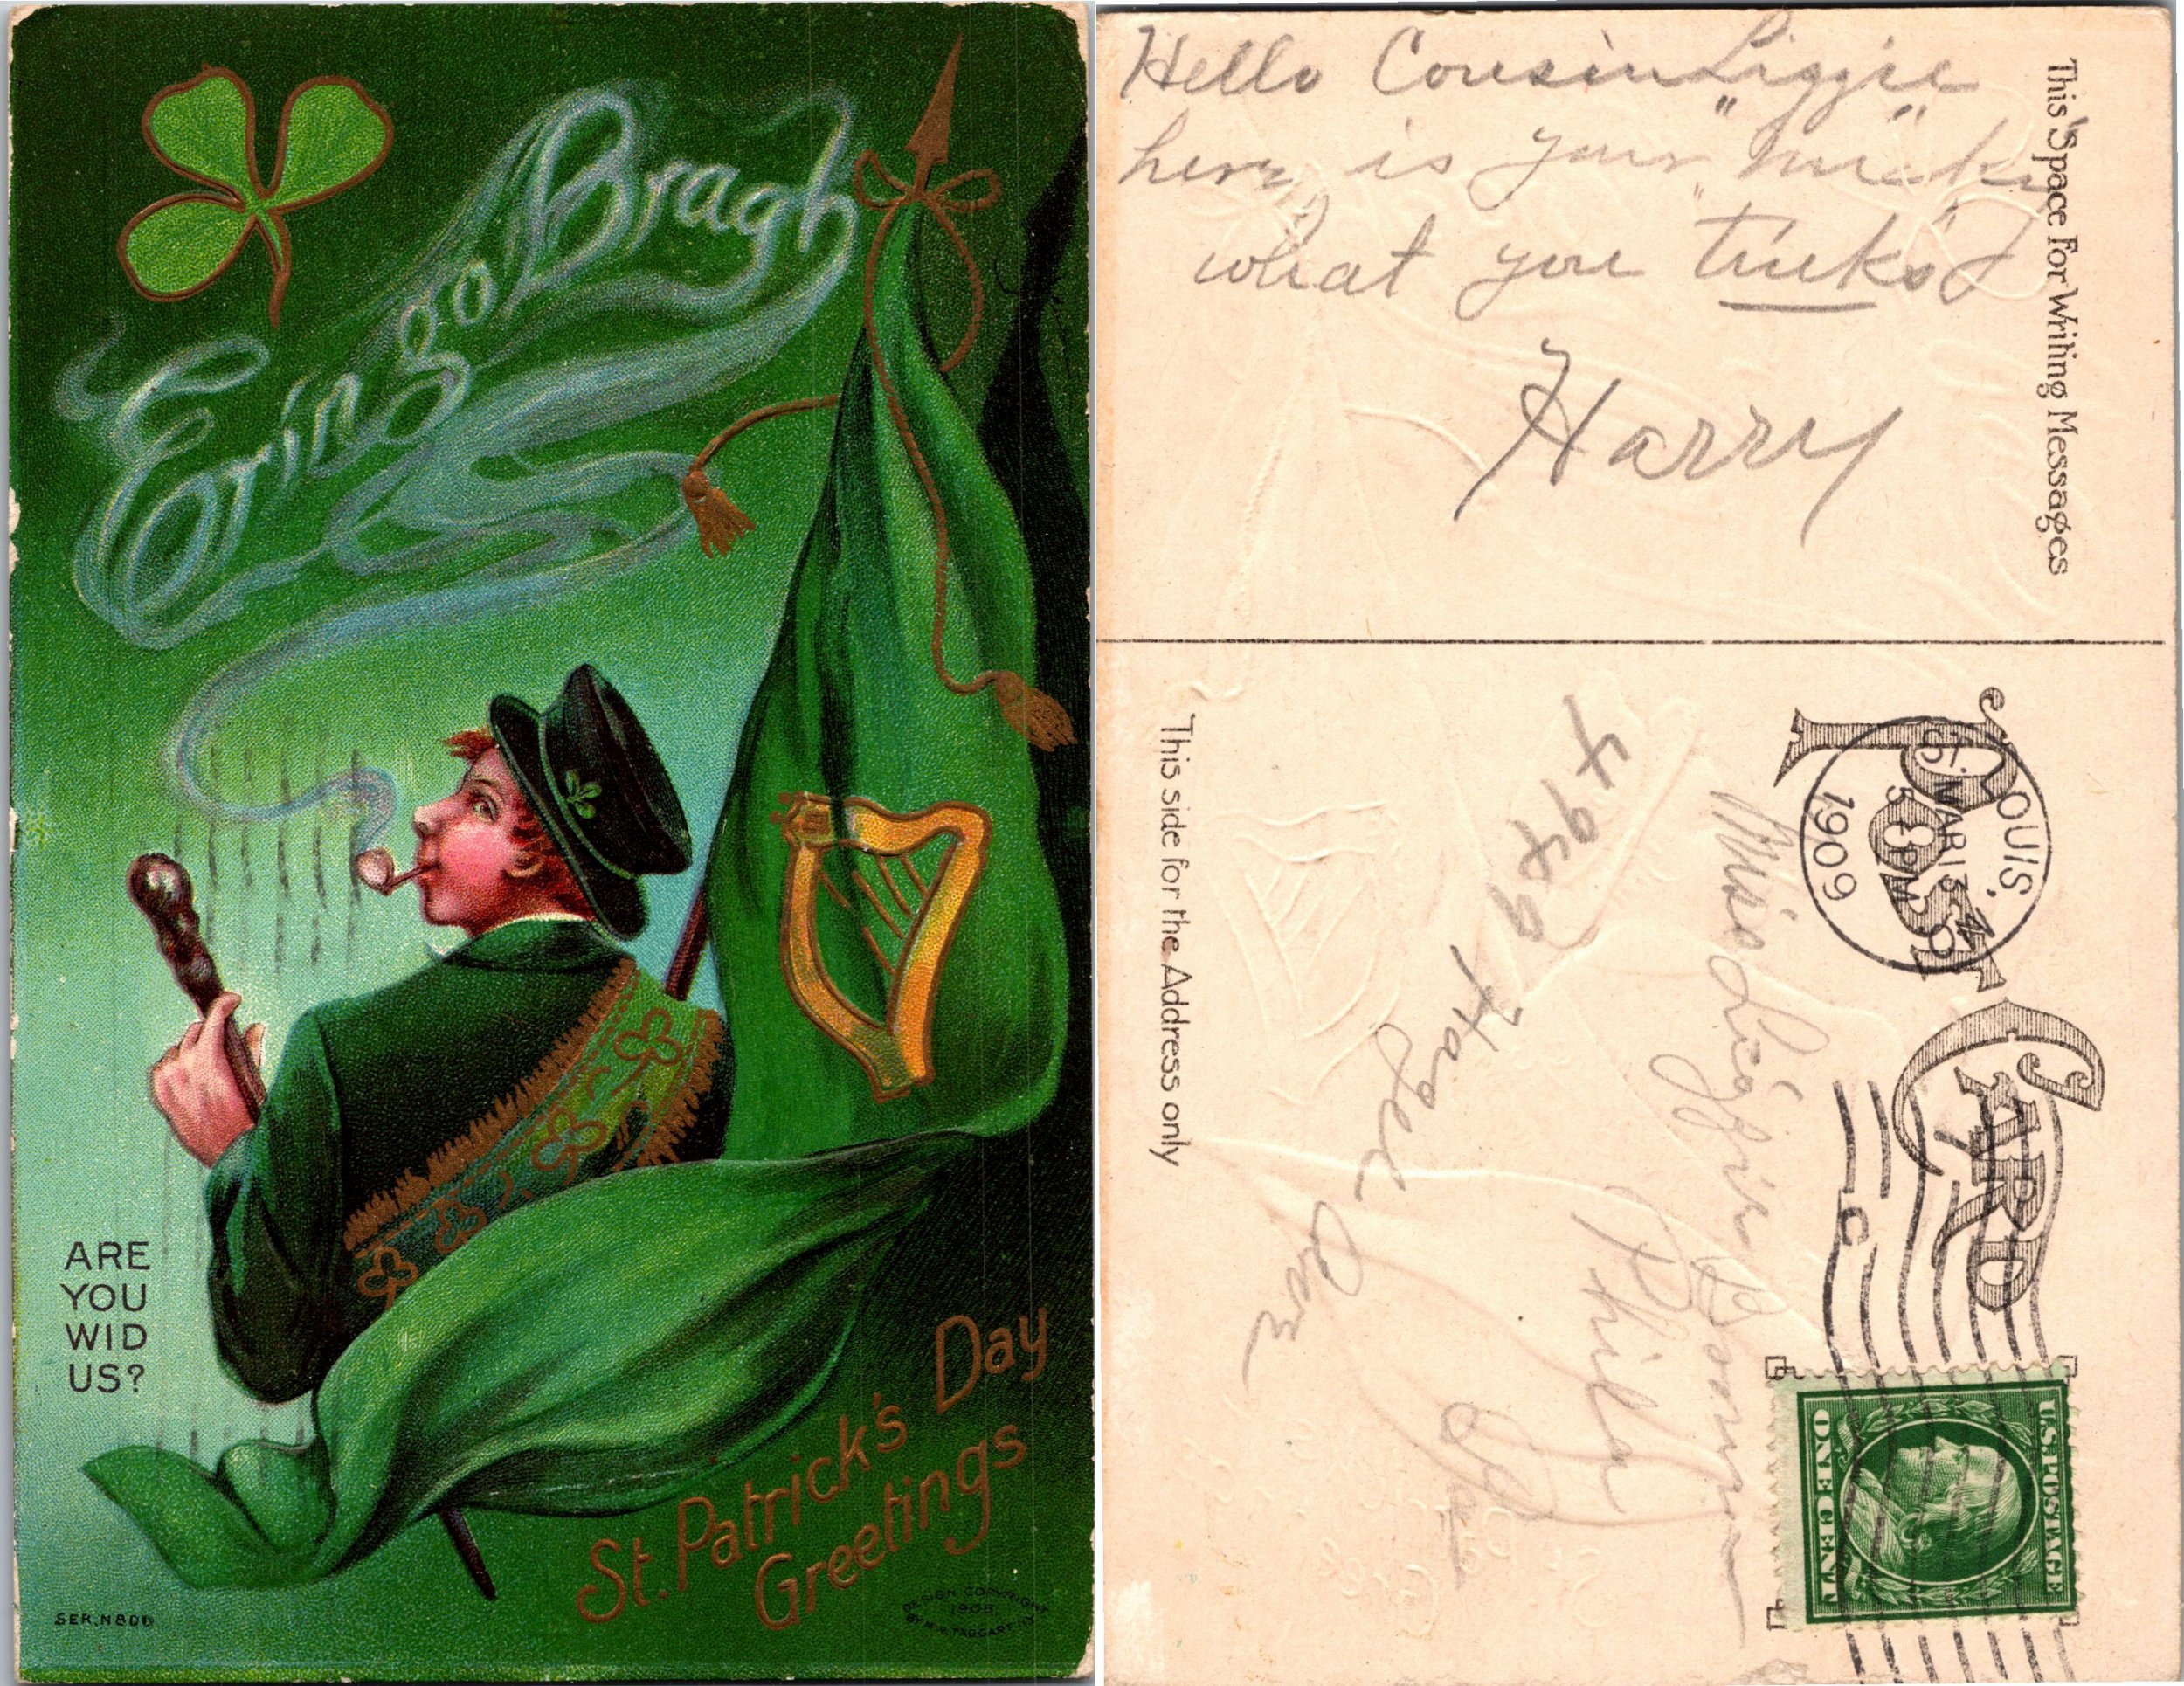 Erin go Bragh
ARE
YOU
WID
US?
St. Patrick's Day
Greetings
SER. N 800
DESIGN COPYRIGHT
1908
BY M.W. TAGGART N.Y.
Hello Cousin Lizzie
here is your "mick"
what you "trick's"
Harry
This Space For Writing Messages
POST CARD
ST. LOUIS,
MAR 13
5 PM
1909
C
U.S. POSTAGE
ONE CENT
Miss Lizzie
Phila
Pa
4949 Hazel Ave
This side for the Address only